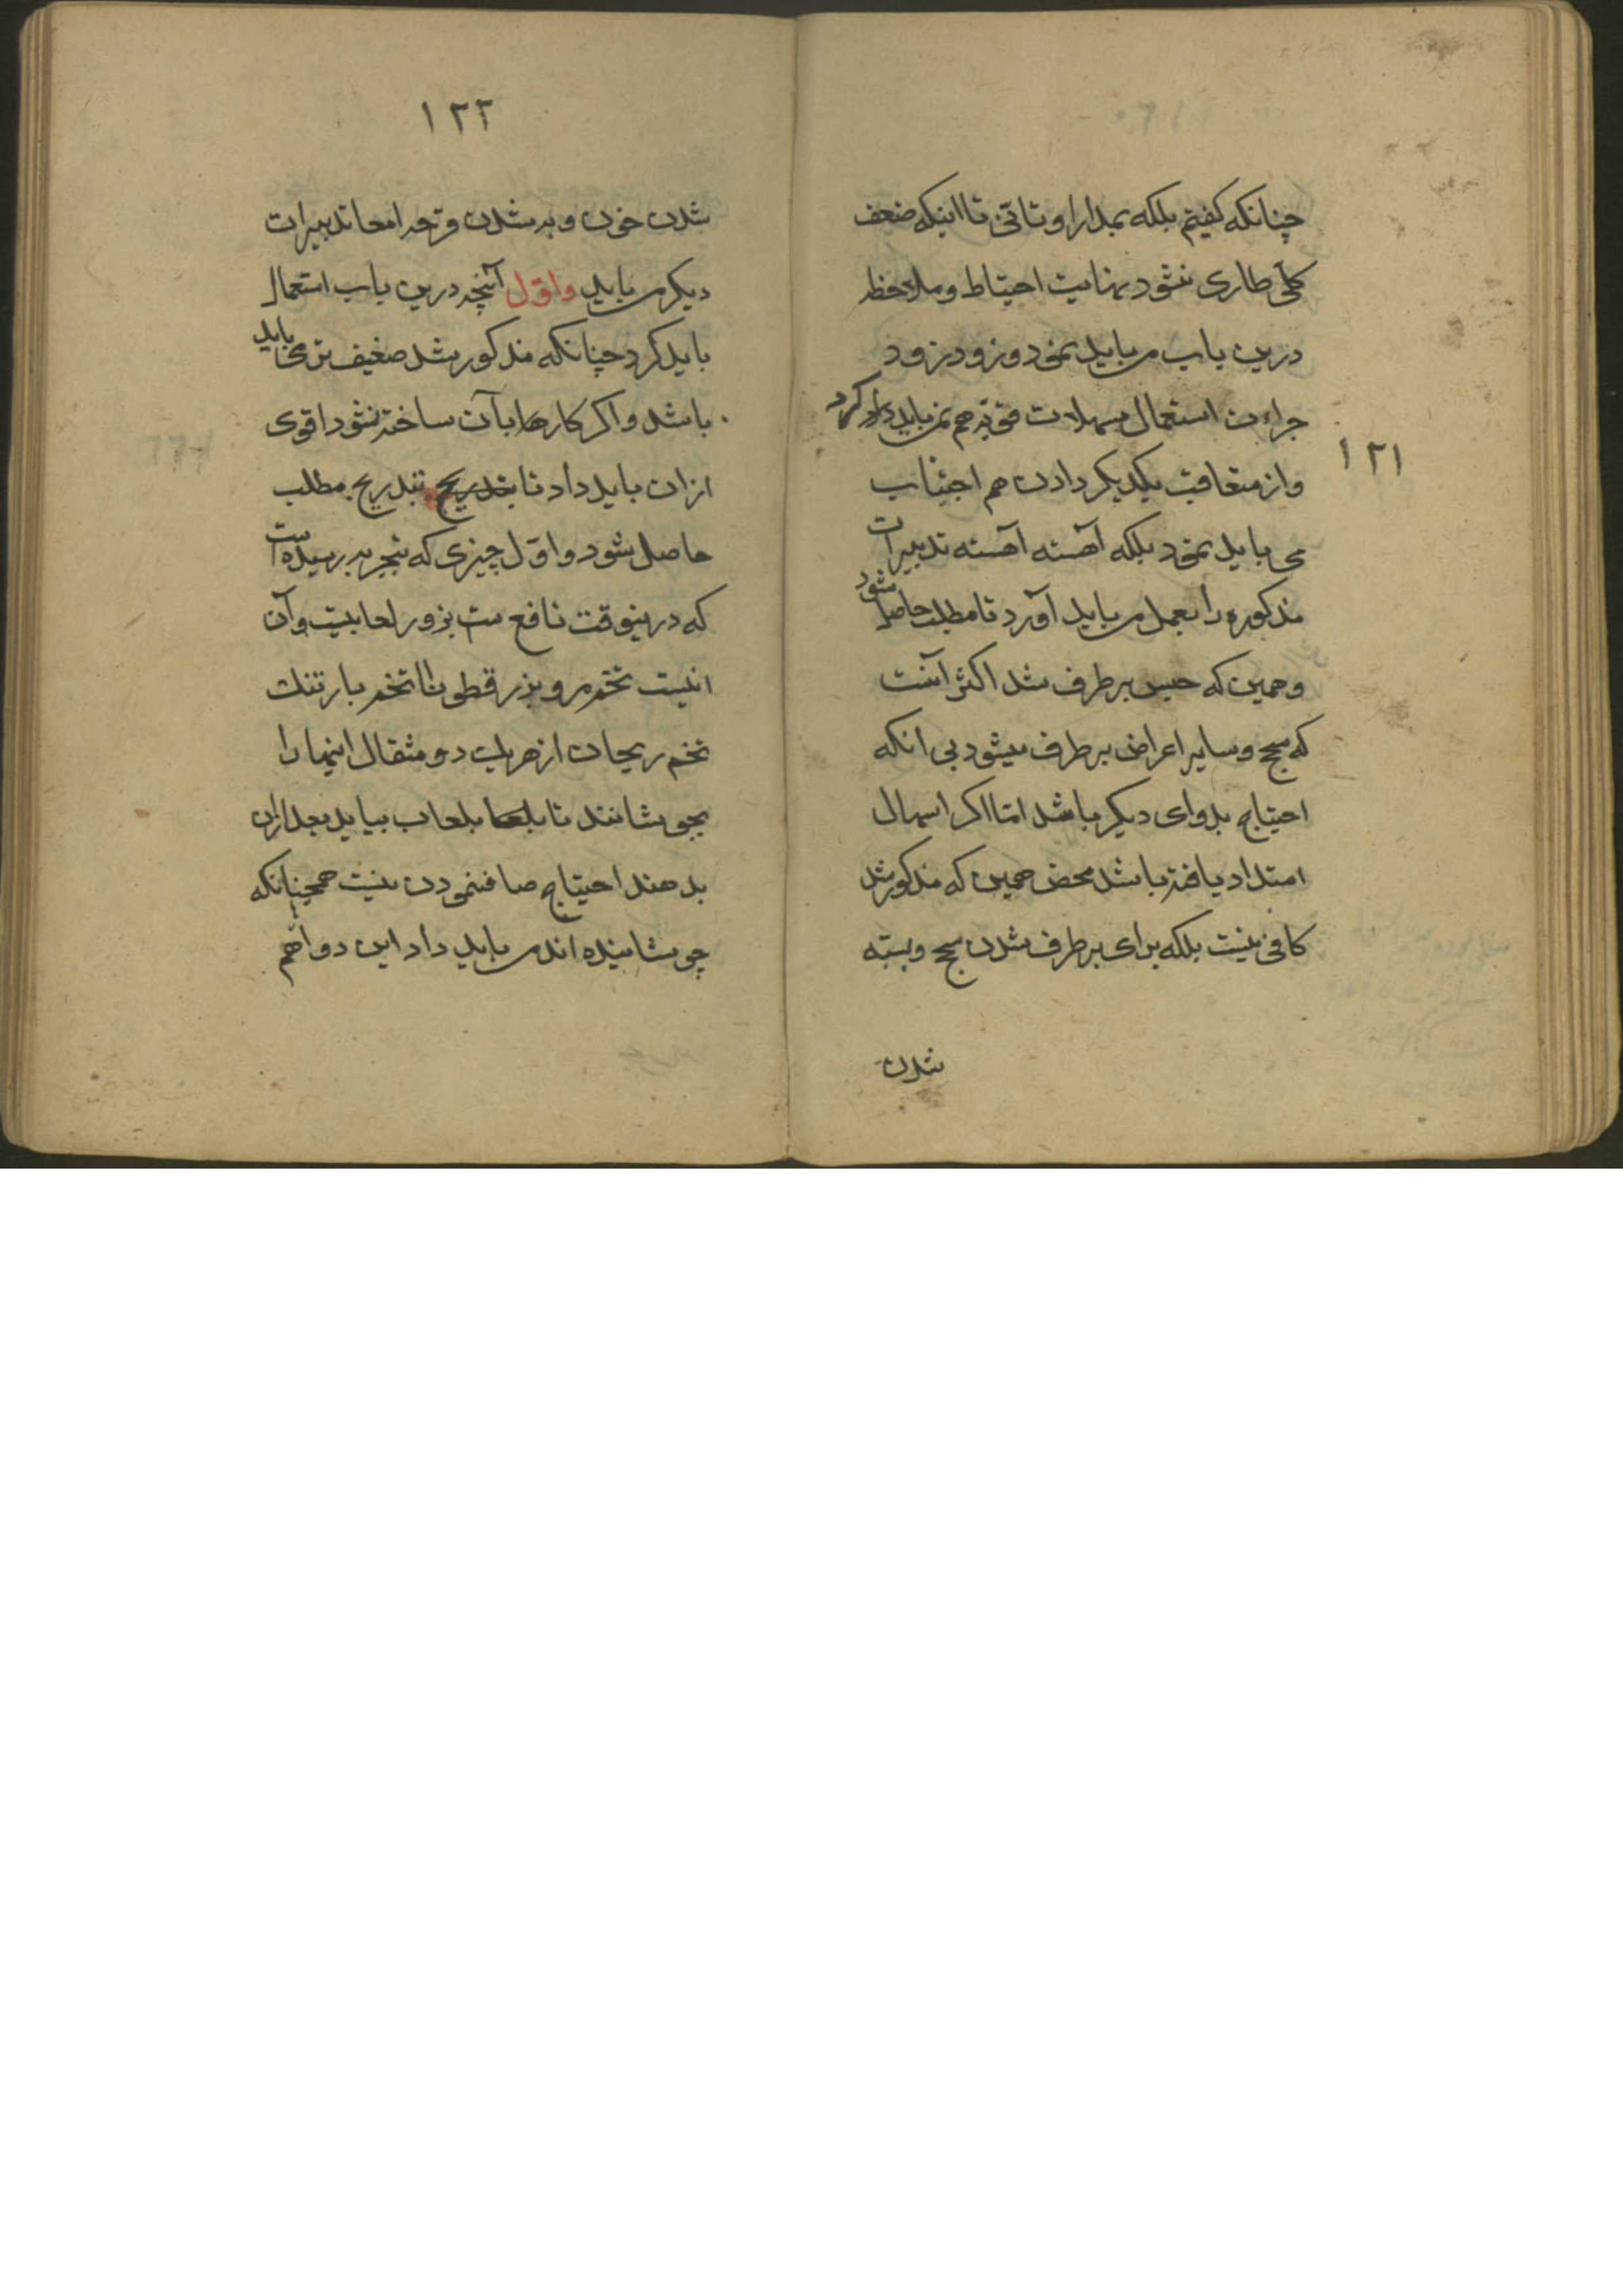 ۱۲۱
چنانکه کفیتم بلکه بمدارا و تاتی تا اینکه ضعف
کلی طاری نشود بنهایت احتیاط و ملاحظه
درین باب می باید نمود و زود زود
جراءت استعمال مسهلات قویه هم نمی باید کرد
و از متعاقب یکدیکر دادن هم اجتناب
می باید نمود بلکه آهسته آهسته تدبیرات
مذکوره را بعمل می باید آورد تا مطلب حاصل شود
و همین که حبس برطرف شد اکثر آنست
که سحج و سایر اعراض برطرف میشود بی انکه
احتیاج بدوای دیکر باشد اما اکر اسهال
امتداد یافته باشد محض همین که مذکور شد
کافی نیست بلکه برای برطرف شدن سحج و بسته
شدن
۱۲۲
شدن خون و به شدن قرحه امعا تدبیرات
دیکر می باید واول آنچه درین باب استعمال
باید کرد چنانکه مذکور شد ضعیف تر می باید
باشد و اکر کارها بآن ساخته نشود اقوی
ازان باید داد تا بتدریج بتدریج مطلب
حاصل شود و اول چیزی که بتجربه رسیده است
که درینوقت نافع ست بزور لعابیت وآن
اینست تخم مرو بزر قطونا تخم بارتنك
تخم ریحان از هر یك دو مثقال اینها را
بجوشانند تا بلعاب بیاید بعد ازان
بدهند احتیاج صاف نمودن نیست همچنانکه
جوشانیده اند می باید داد این دوا هم